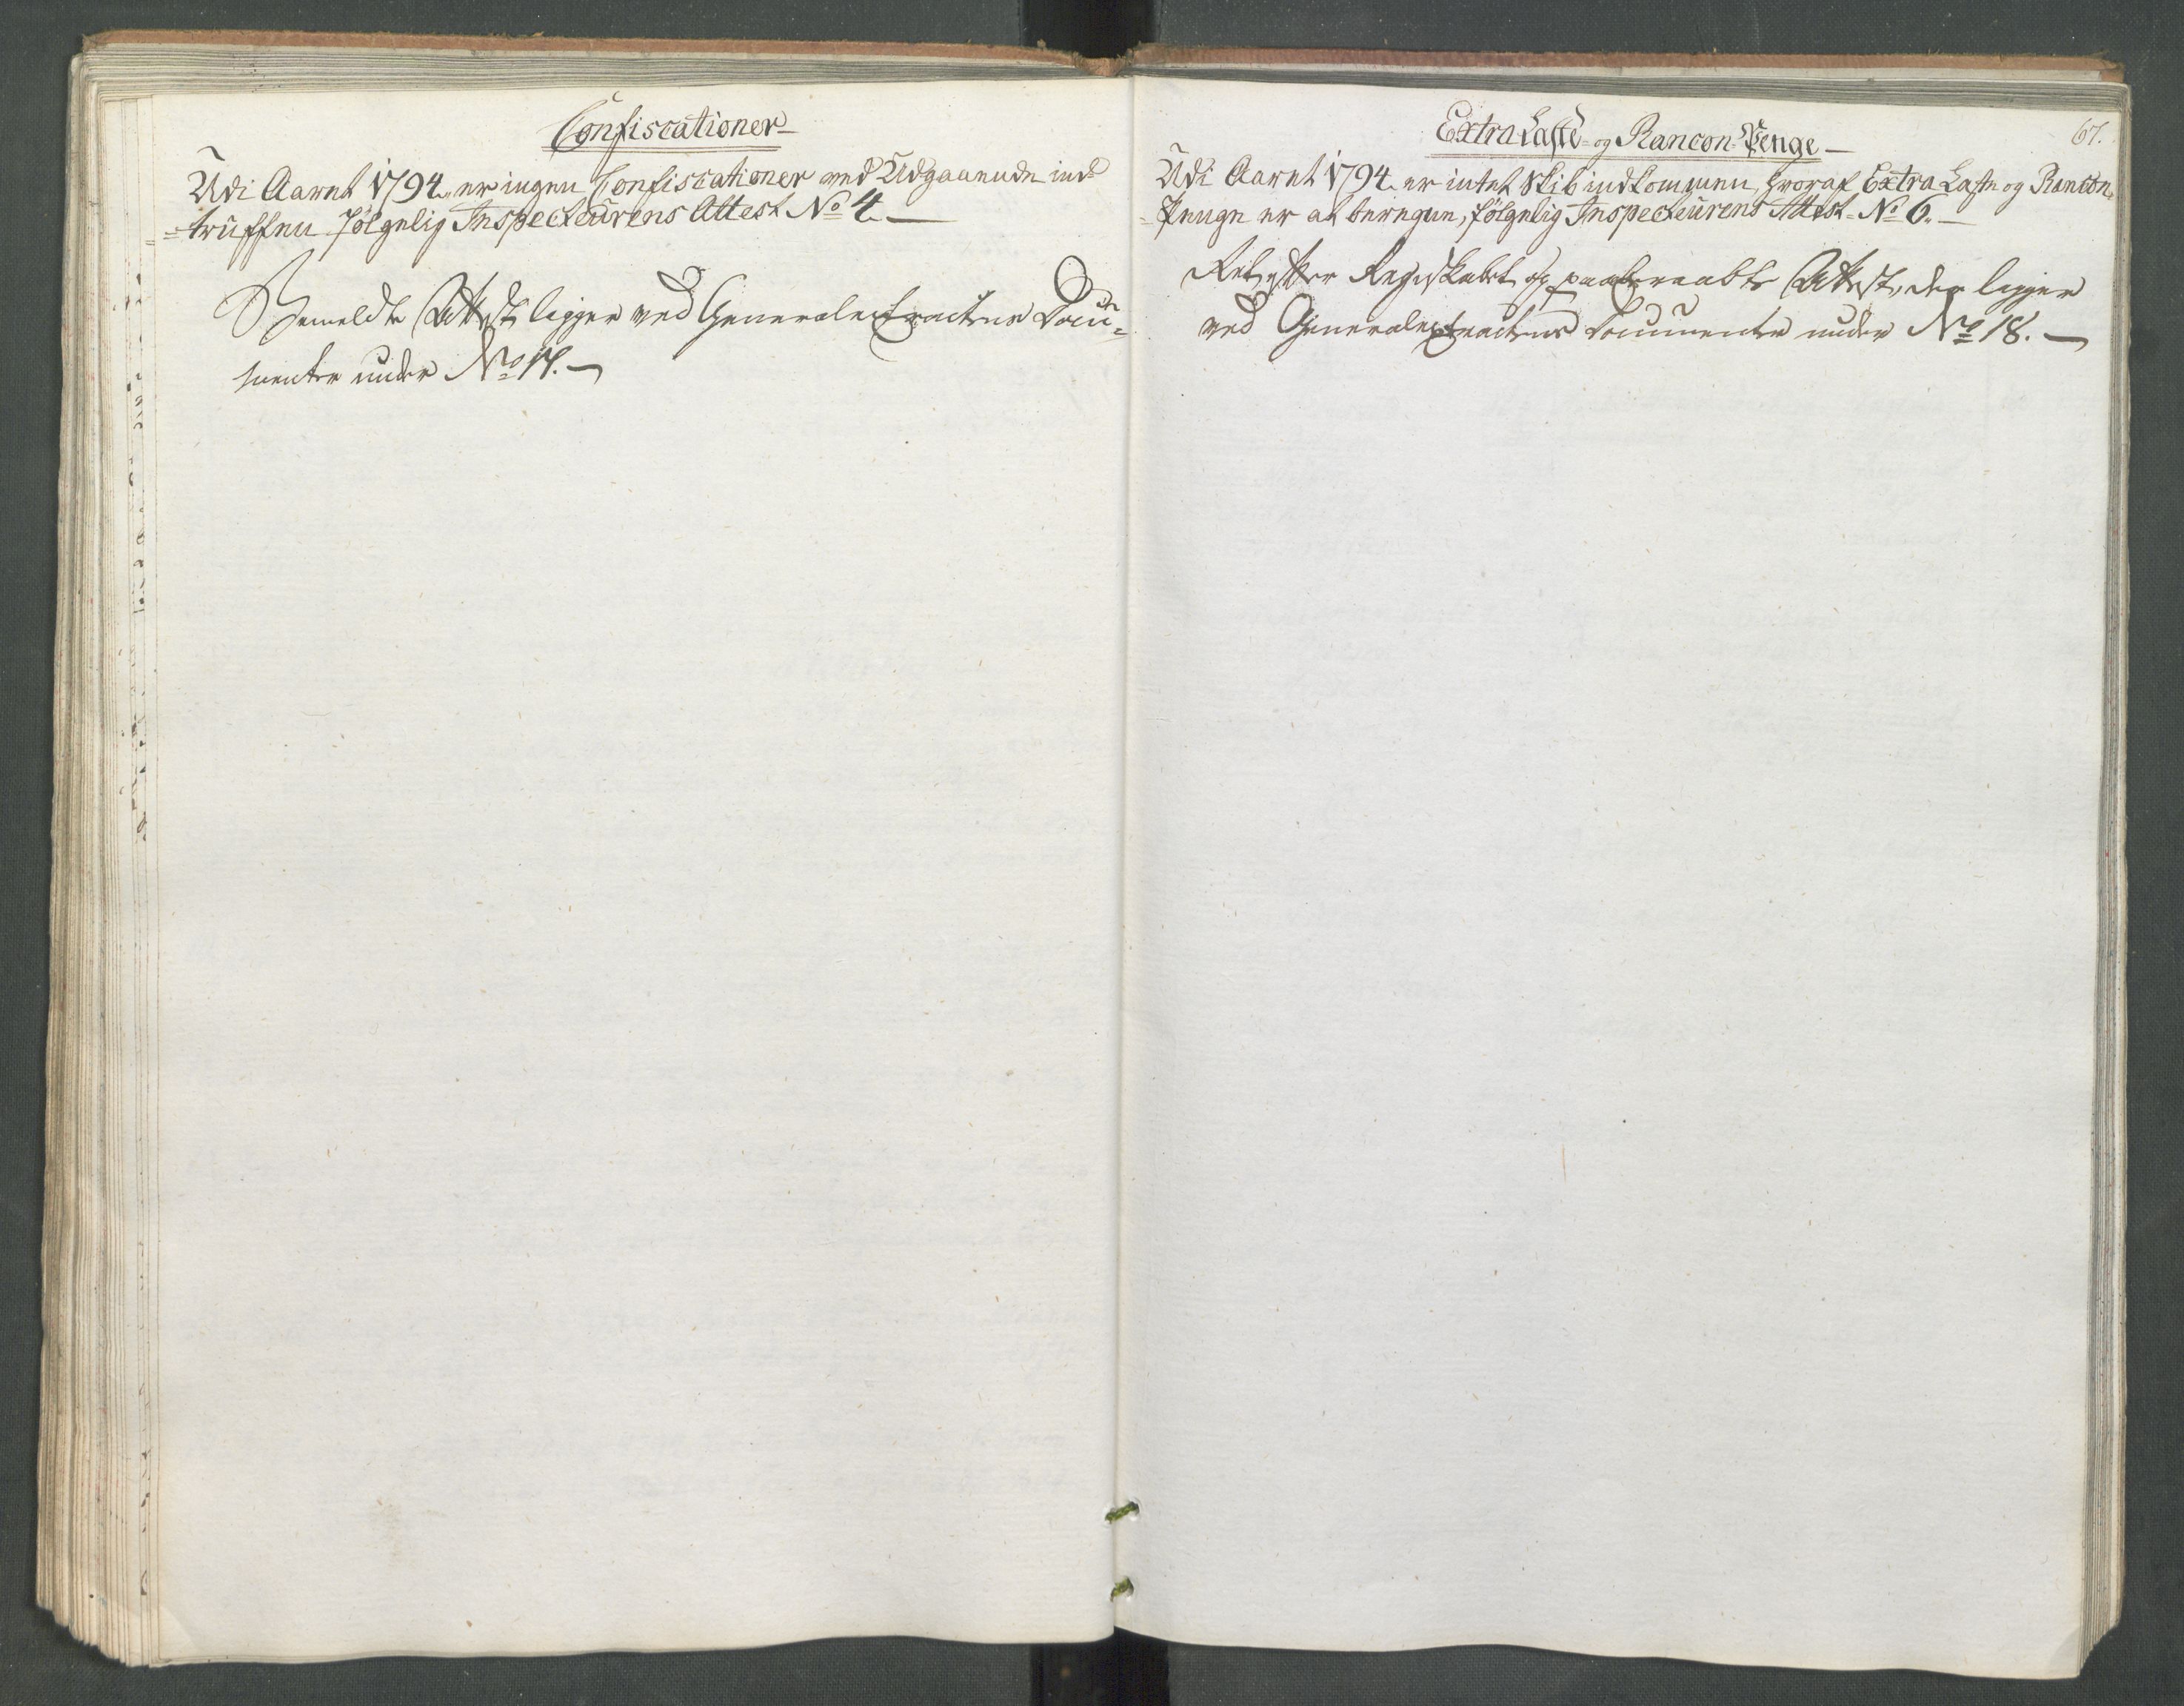 Confiscationer
Udi Aaret 1794. er ingen Confiscationer ved Udgaaende ind-
-truffen følgelig Inspecteurens Attest No 4.
Bemeldte Attest ligger ved Generalextractens Docu-
menter under No 17.
67.
Extra Laste- og Rancon-Penge
Udi Aaret 1794. er intet Skib indkommen, hvoraf Extra Laste og Rancon-
-Penge er at beregne, følgelig Inspecteurens Attest No 6.
Regnskabet og paaberaabte Attest, der ligger
ved Generalextractens Documenter under No 18.